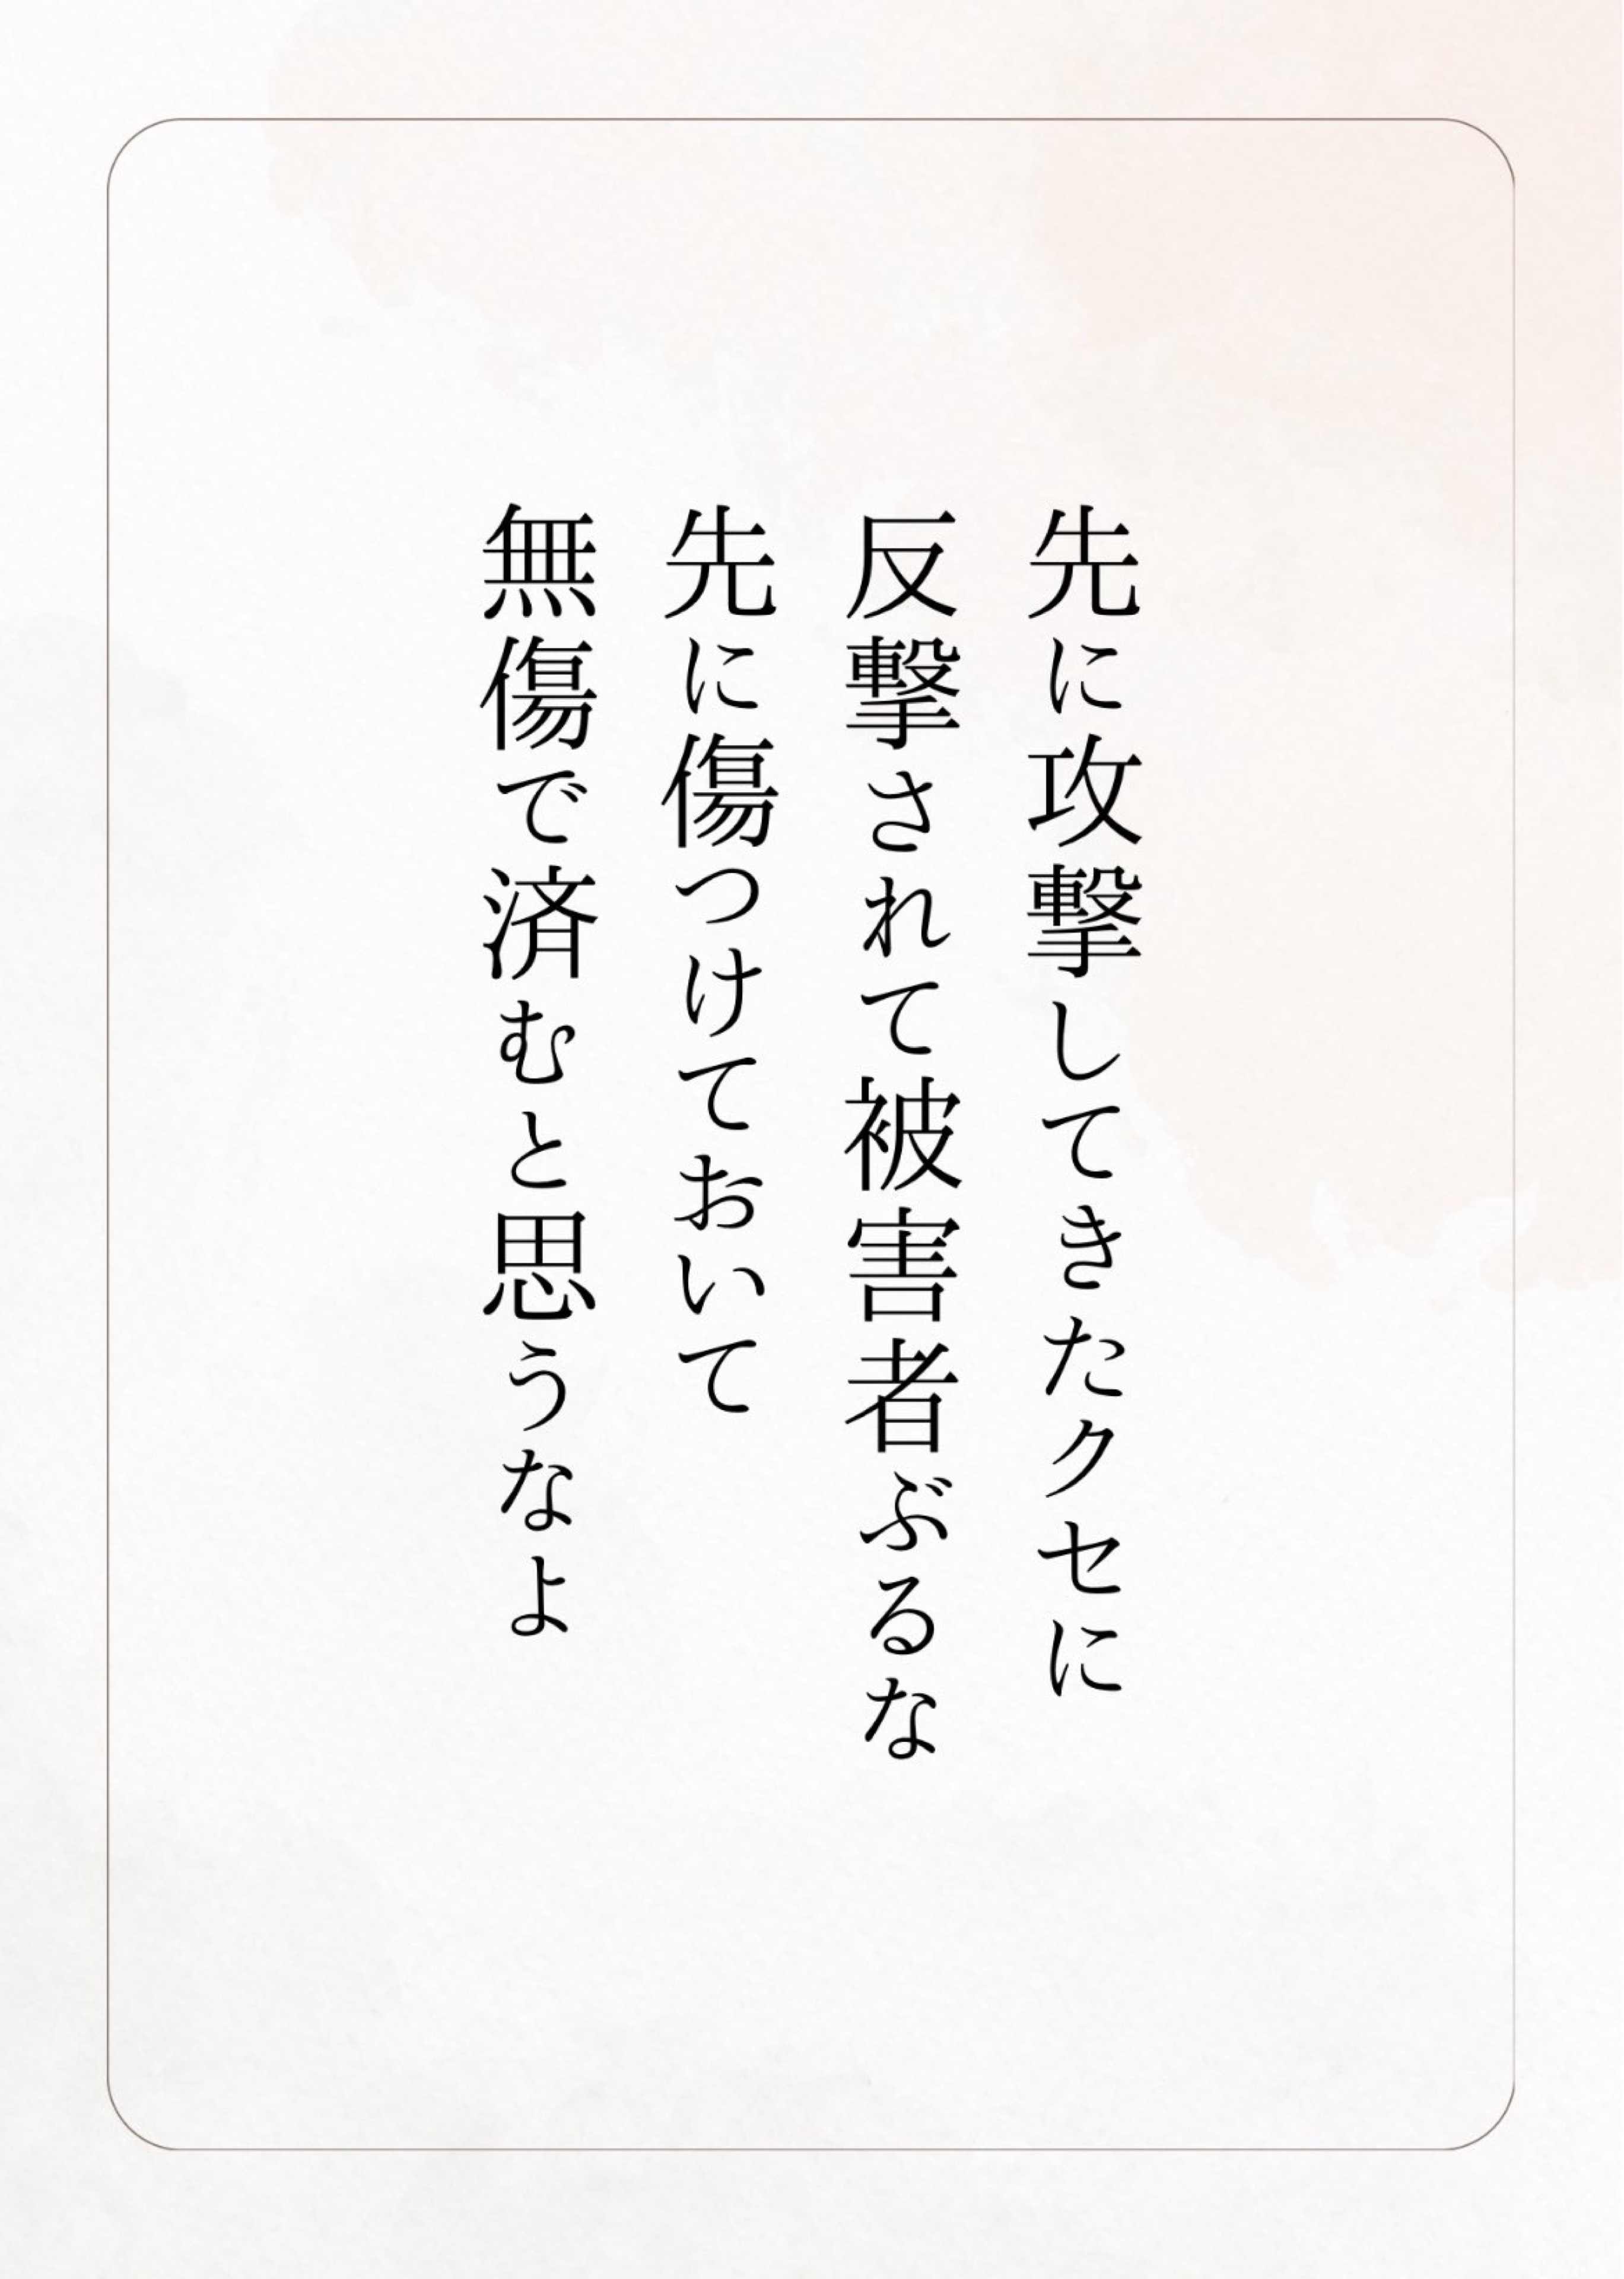 先に攻撃してきたクセに
反撃されて被害者ぶるな
先に傷つけておいて
無傷で済むと思うなよ